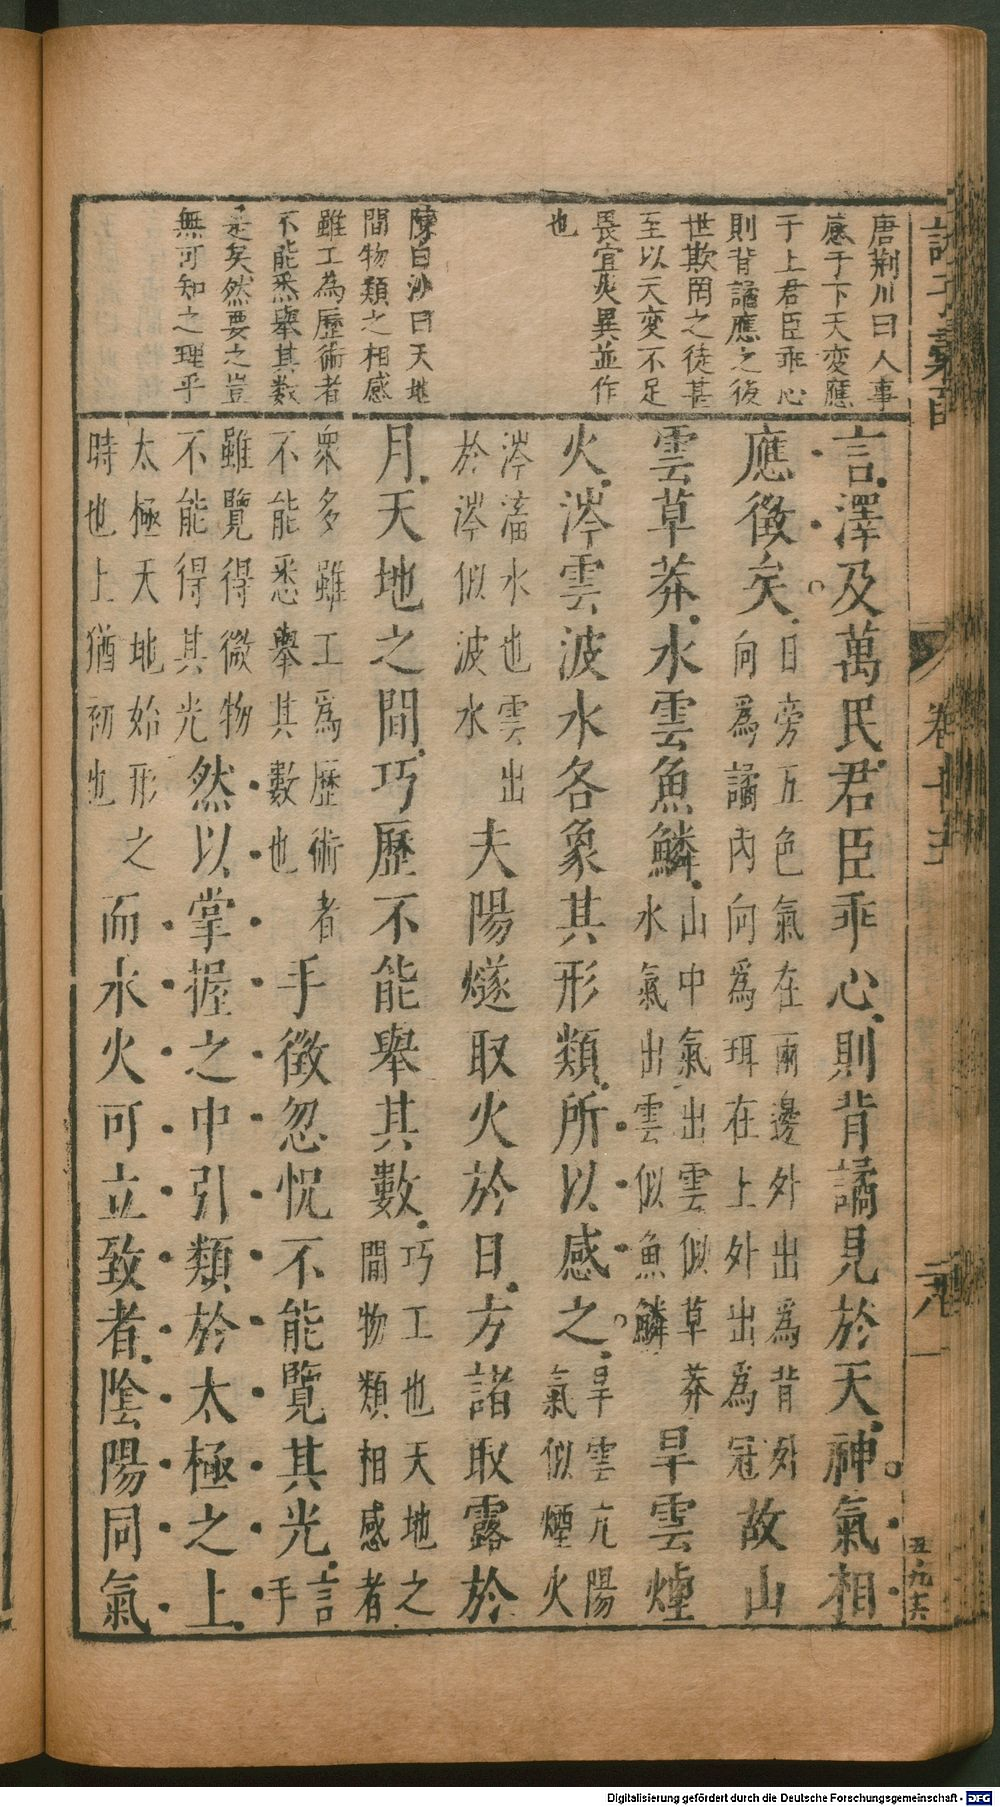 唐荆川曰人事
感于下天變應
于上君臣乖心
則背譎應之後
世欺罔之徒甚
至以天變不足
畏宜災異並作
也
陳白沙曰天地
間物類之相感
雖工為歷術者
不能悉舉其數
是矣然要之豈
無可知之理乎
言澤及萬民君臣乖心則背譎見於天神氣相
應徵矣日旁五色氣在兩邊外出為背外
向爲譎內向爲珥在上外出爲冠故山
雲草莽水雲魚鱗山中氣出雲似草莽
水氣出雲似魚鱗旱雲煙
火涔雲波水各象其形類所以感之旱雲亢陽
氣似煙火
涔濇水也雲出
於涔似波水夫陽燧取火於日方諸取露於
月天地之間巧歷不能舉其數巧工也天地之
間物類相感者
衆多雖工爲歷術者
不能悉舉其數也手徵忽怳不能覽其光言
手
雖覽得微物
不能得其光然以掌握之中引類於太極之上
太極天地始形之
時也上猶初也而水火可立致者陰陽同氣
卷十五
五九六
Digitalisierung gefördert durch die Deutsche Forschungsgemeinschaft - DFG